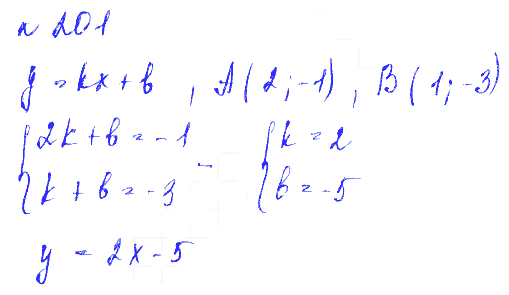 n 201
y = kx + b , A(2;-1), B(1;-3)
{2k + b = -1 - {k = 2
{k + b = -3 {b = -5
y = 2x - 5